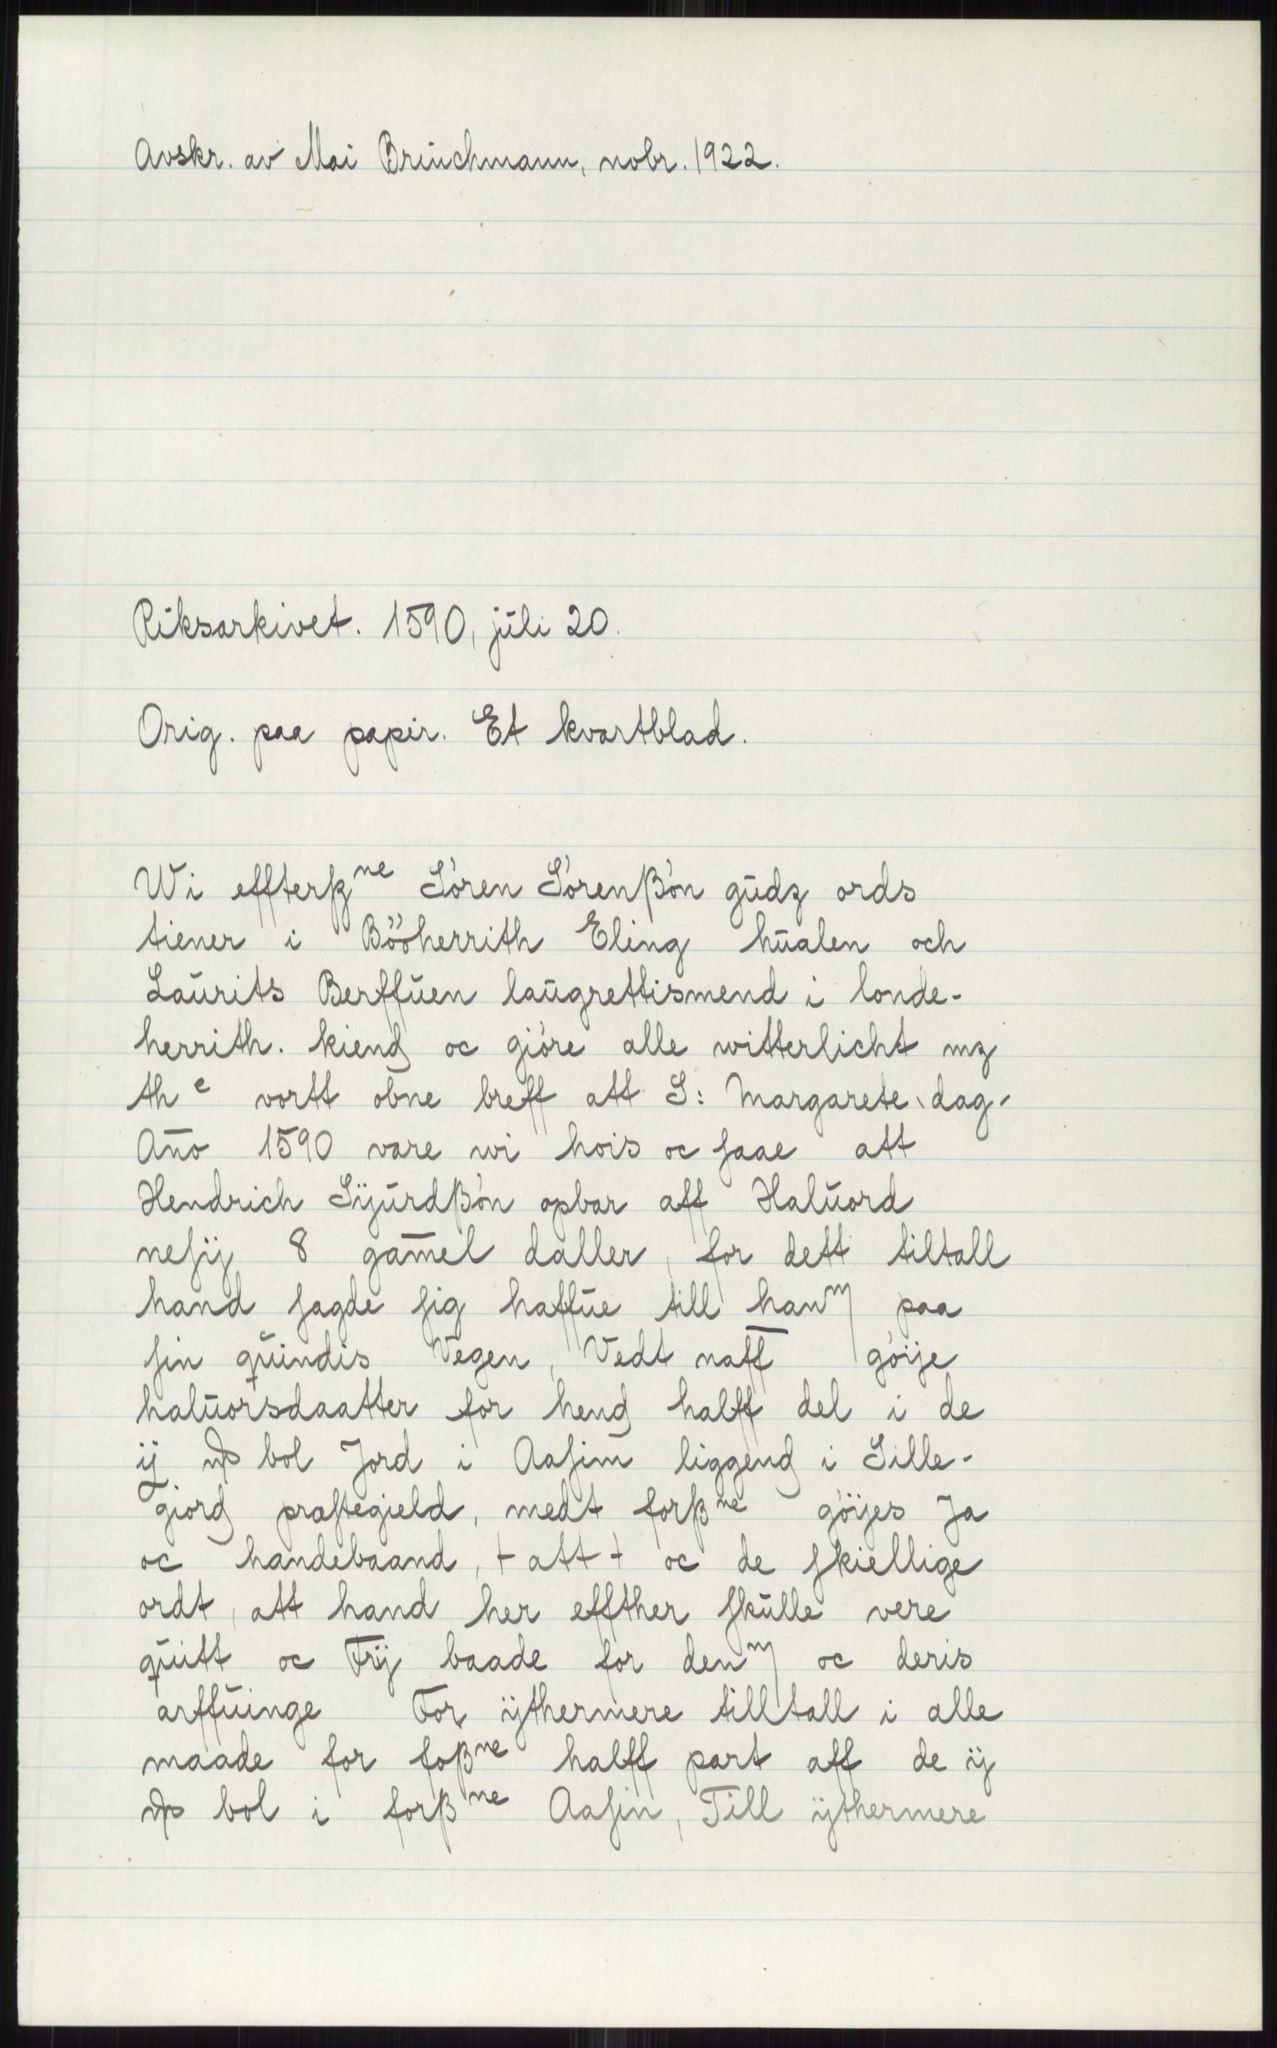 Avskr. av Mai Brinchmann, nobr. 1922.
Riksarkivet. 1590, juli 20.
Orig. paa papir. Et kvartblad.
Wi effterßne Sören Sörenßön gudz ords
tiener i Bööherrith Eling hualen och
Laurits Berffuen laugrettismend i londe-
herrith. kiend oc giöre alle witterlicht mz
the vortt obne breff att S: Margarete dag.
Año 1590 vare wi hois oc ſaae att
Hendrich Sÿurdßön opbar aff Haluord
neſÿ 8 gam̄el daller, for dett tiltall
hand ſagde ſig haffue till hanm paa
ſin quindis Vegen, Vedt naff göÿe
haluorsdaatter for hend halff del i de
ÿ bol Jord i Aaſim liggend i Sille-
giord præſtegield, medt forßne göÿes Ja
oc handebaand, + att + oc de ſkiellige
ordt, att hand her effther ſkulle vere
quitt oc Frÿ baade for denm oc deris
arffuinge For ÿthermere tilltall i alle
maade for foßne halff part aff de ÿ
bol i forßne Aaſin, Till ÿthermere